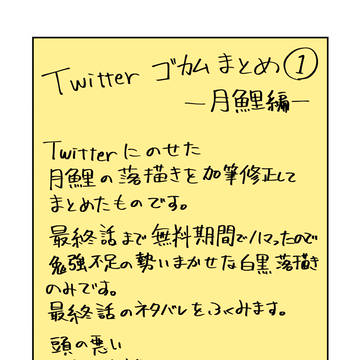 Twitter ゴカムまとめ①
―月鯉編―
Twitterにのせた
月鯉の落描きを加筆修正して
まとめたものです。
最終話まで無料期間でハマったので
勉強不足の勢いまかせな白黒落描き
のみです。
最終話のネタバレをふくみます。
頭の悪い